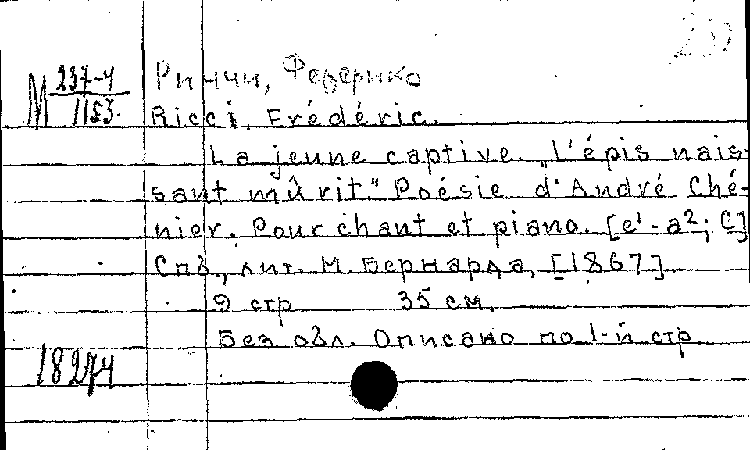 М 237-4
1153.
Риччи, Федерико
Ricci, Frédéric.
La jeune captive „L'épis nais-
sant mûrit." Poésie d'André Ché-
nier. Pour chant et piano. [e¹-a²; C]
Спб., лит. М. Бернарда, [1867]
9 стр 35 см.
Без обл. Описано по 1-й стр
18274